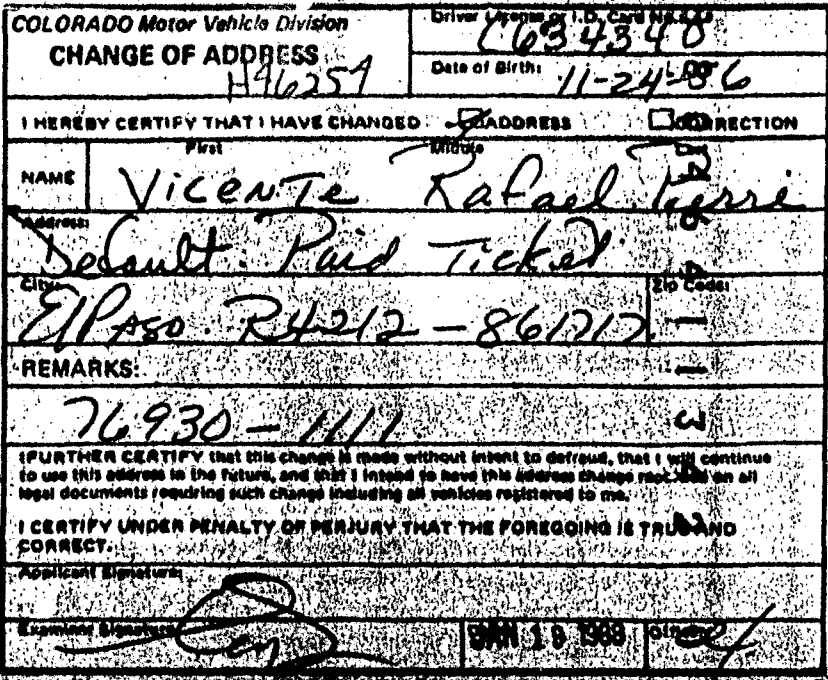 COLORADO Motor Vehicle Division
CHANGE OF ADDRESS
H96259
Driver License or I.D. Card No.
C634340
Date of Birth:
11-24-86
I HEREBY CERTIFY THAT I HAVE CHANGED ADDRESS CORRECTION
NAME First Middle
Vicente Rafael
Address:
Default. Paid Ticket
City: Zip Code:
El Paso. R4212-861717
REMARKS:
76930-1111
I FURTHER CERTIFY that this change is made without intent to defraud, that I will continue
to use this address in the future, and that I intend to have this address change on all
legal documents requiring such change including all vehicles registered to me.
I CERTIFY UNDER PENALTY OF PERJURY THAT THE FOREGOING IS TRUE AND
CORRECT.
Applicant Signature:
Examiner Signature
JAN 19 Office